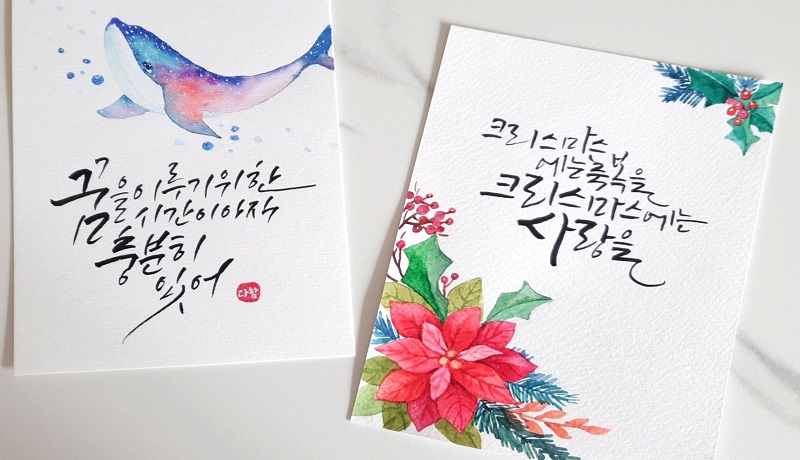 꿈을이루기위한
시간이아직
충분히
있어
다밤
크리스마스
에는축복을
크리스마스에는
사랑을